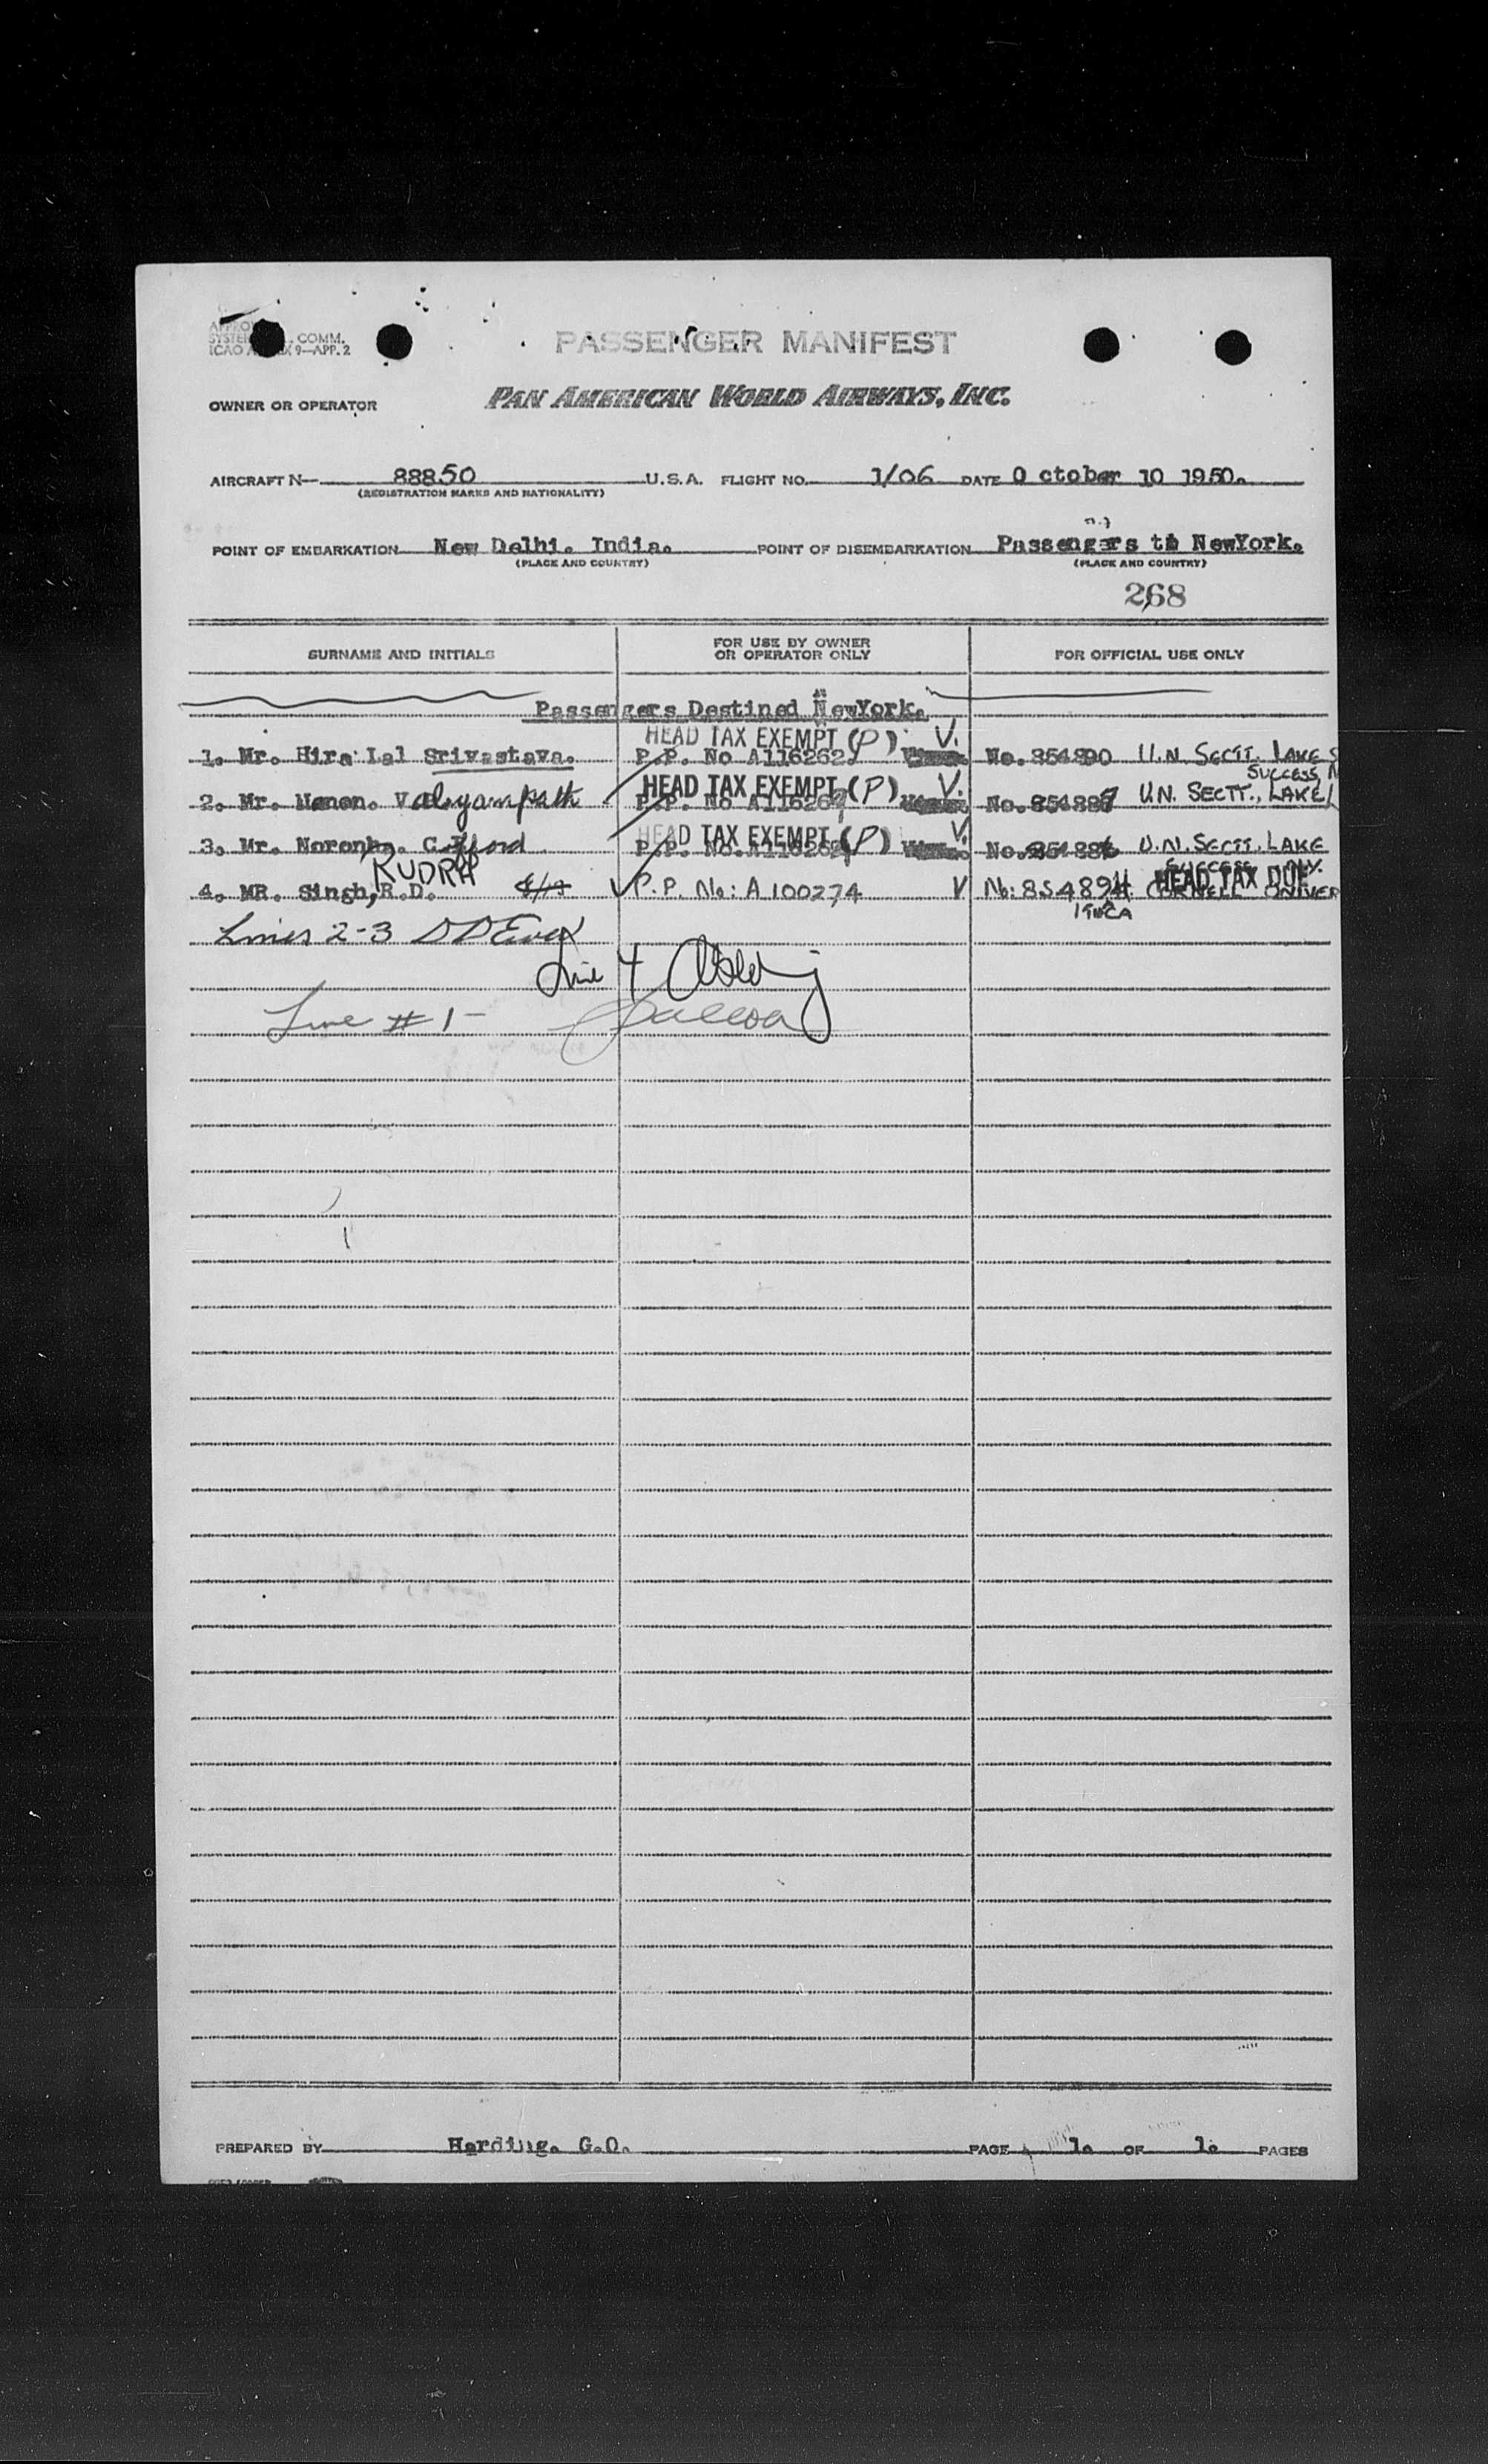 COMM.
ICAO 9—APP. 2
PASSENGER MANIFEST
OWNER OR OPERATOR PAN AMERICAN WORLD AIRWAYS, INC.
AIRCRAFT N— 88850 U.S.A. FLIGHT NO. 1/06 DATE O ctober 10 1950.
(REGISTRATION MARKS AND NATIONALITY)
POINT OF EMBARKATION New Delhi. India. POINT OF DISEMBARKATION Passengers to NewYork.
(PLACE AND COUNTRY) (PLACE AND COUNTRY)
268
SURNAME AND INITIALS FOR USE BY OWNER OR OPERATOR ONLY FOR OFFICIAL USE ONLY
Passengers Destined NewYork.
HEAD TAX EXEMPT (P) V.
1. Mr. Hira Lal Srivastava. P.P. No A116262. No. 854890 U.N. SECTT. LAKE S
SUCCESS, N
HEAD TAX EXEMPT (P) V.
2. Mr. Menon. Valiyampath P.P. No A11626 No. 85488 U.N. SECTT., LAKE
HEAD TAX EXEMPT (P) V.
3. Mr. Noronha. Clifford P.P. No. A11626 No. 85488 U.N. SECTT. LAKE
SUCCESS N.Y.
RUDRA HEAD TAX DUE
4. MR. Singh, R.D. P.P. No: A 100274 V No: 854894 CORNELL UNIVER
ITHACA
Lines 2-3
Line 4
Line #1-
PREPARED BY Harding. G.O. PAGE 1. OF 1. PAGES